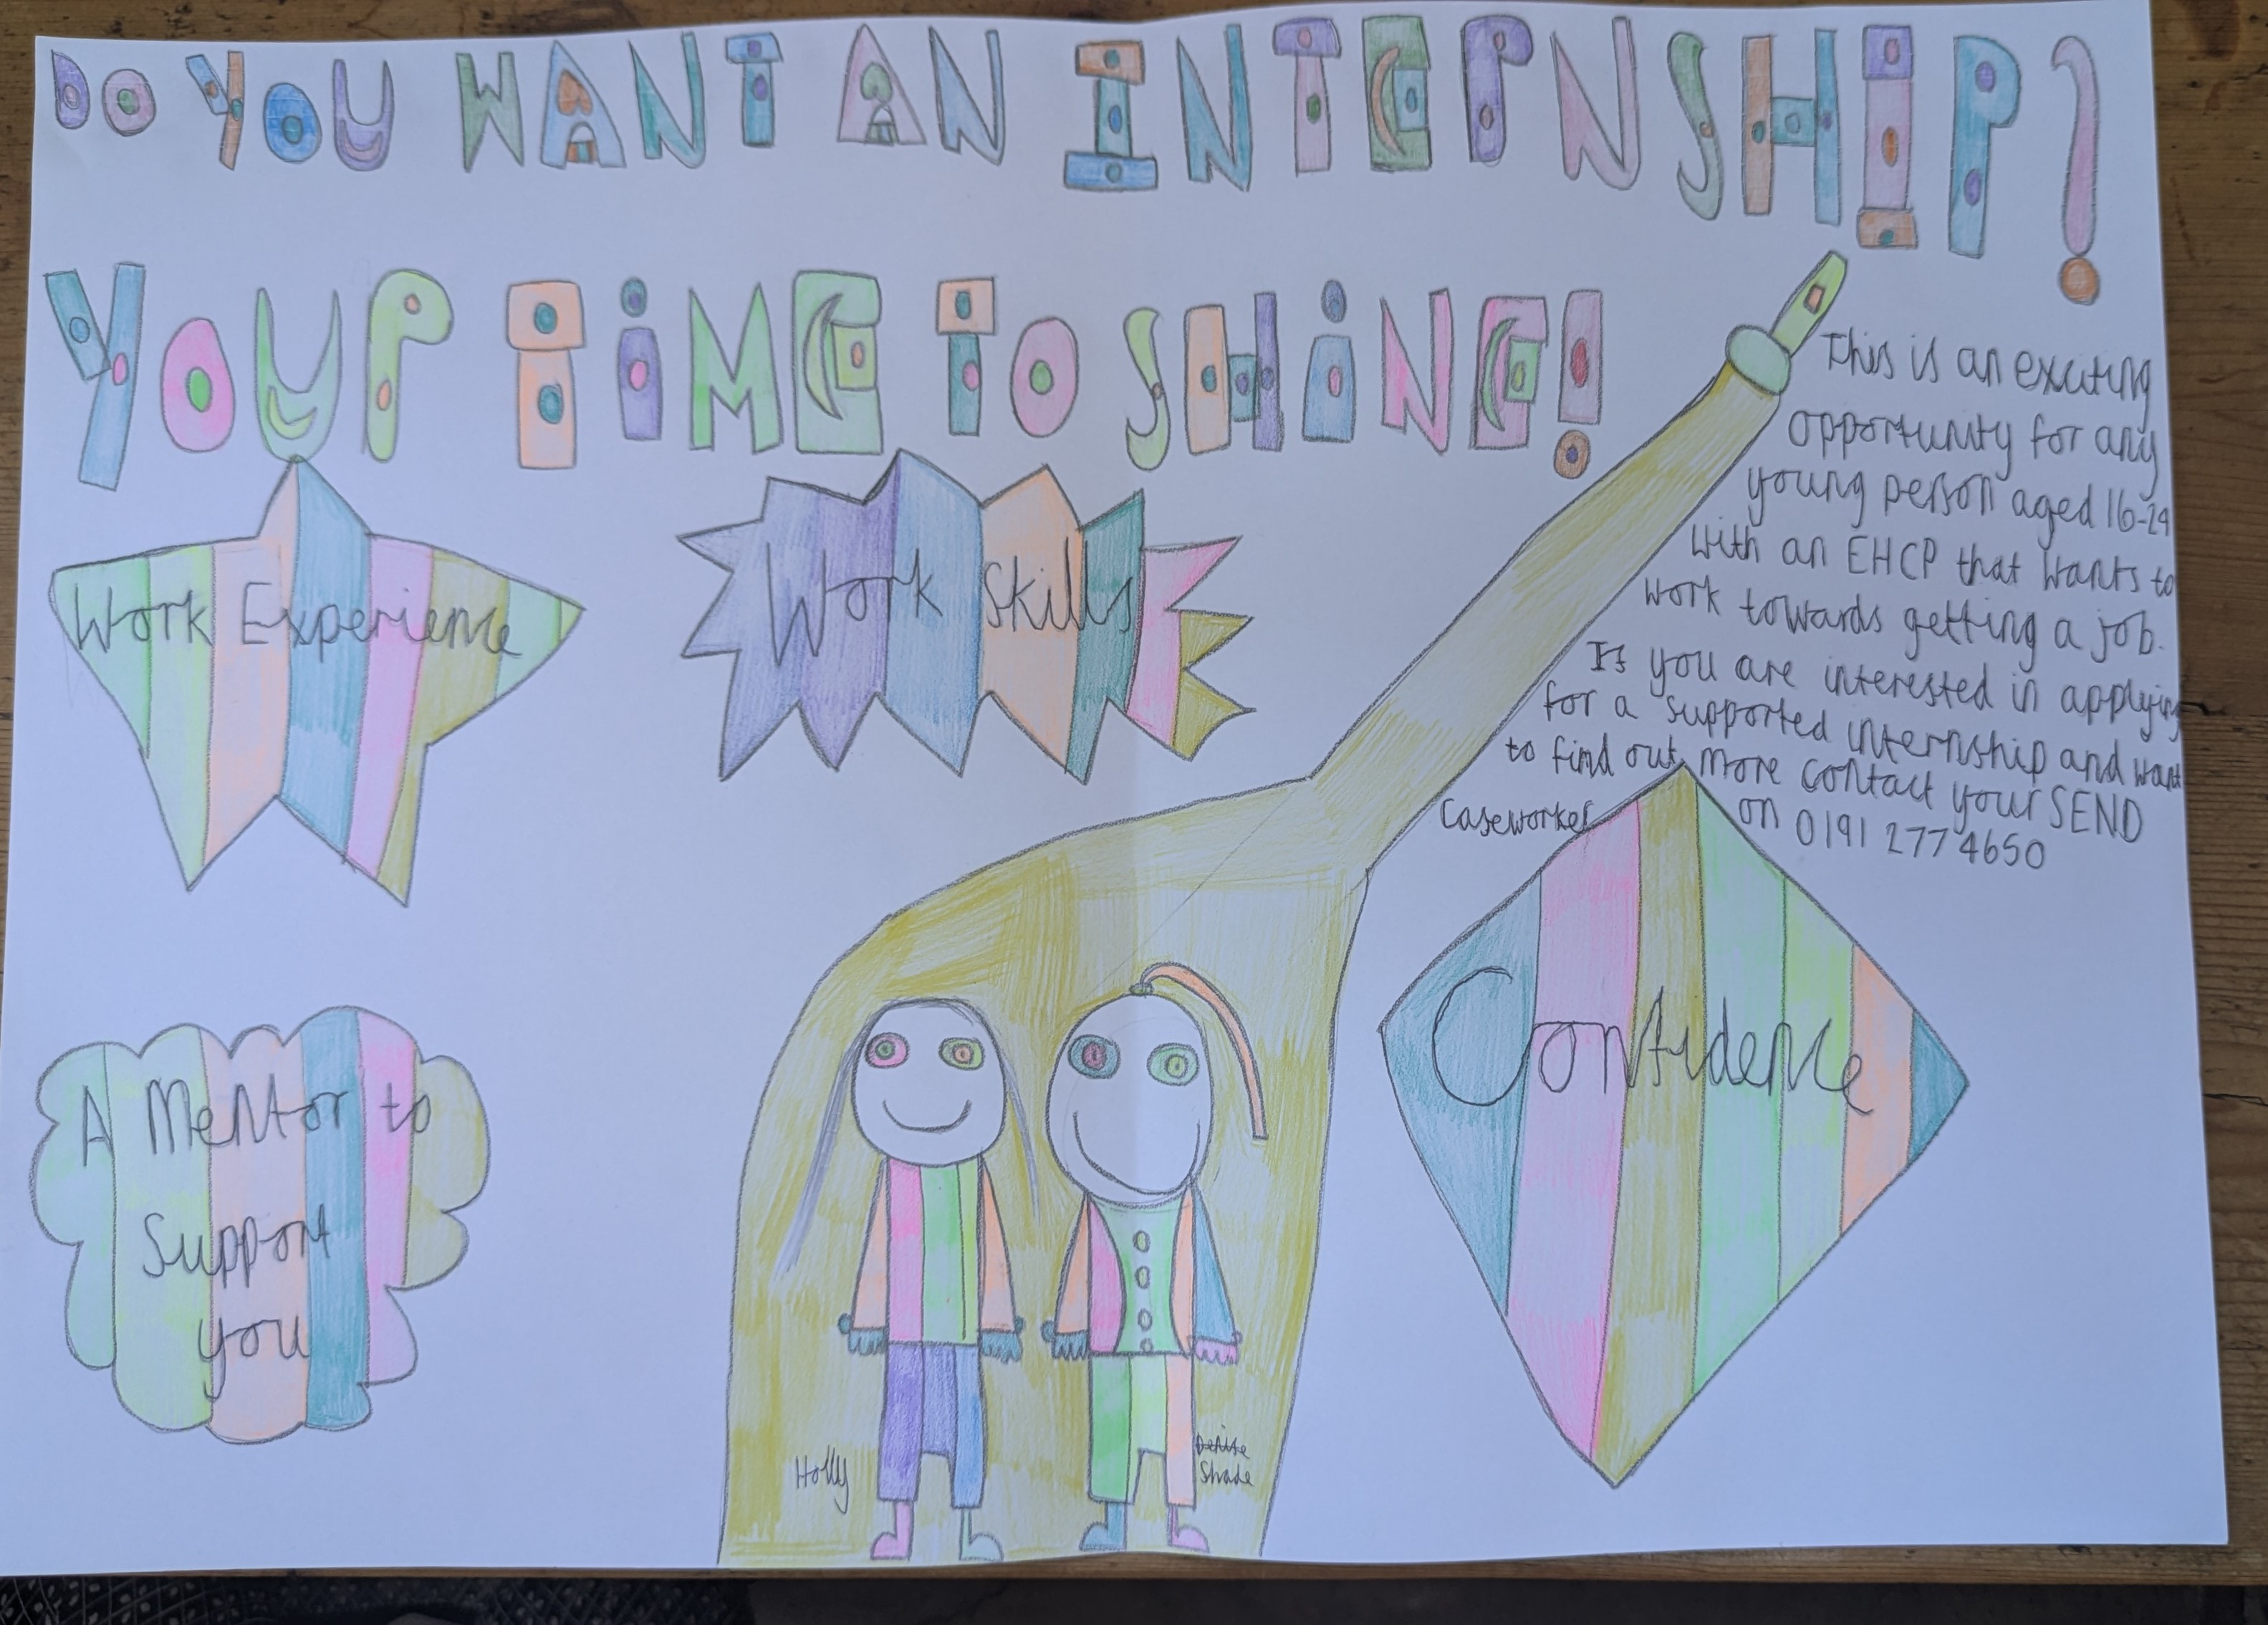 DO YOU WANT AN INTERNSHIP?
YOUR TIME TO SHINE!
This is an exciting
opportunity for any
young person aged 16-24
with an EHCP that wants to
work towards getting a job.
If you are interested in applying
for a supported internship and want
to find out more contact your SEND
Caseworker on 0191 277 4650
Work Experience
Work Skills
A Mentor to
Support
you
Confidence
Holly
Denise
Shade